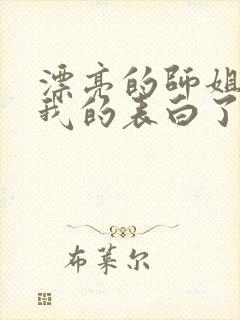 漂亮的师姐
我的表白了
布莱尔